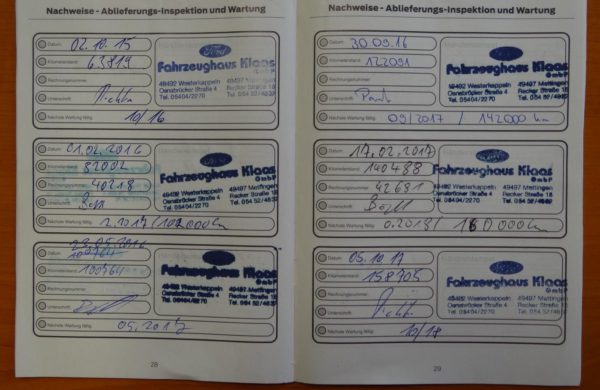 Nachweise - Ablieferungs-Inspektion und Wartung
Datum: 02.10.15
Kilometerstand: 63819
Rechnungsnummer:
Unterschrift:
Nächste Wartung fällig: 10/16
Ford
Fahrzeughaus Klaas
GmbH
49492 Westerkappeln 49497 Mettingen
Osnabrücker Straße 4 Recker Straße 18
Tel. 05404/2270 Tel. 054 52/4632
Datum: 01.02.2016
Kilometerstand: 82002
Rechnungsnummer: 40218
Unterschrift:
Nächste Wartung fällig: 2.2017/102.000km
Fahrzeughaus Klaas
GmbH
49492 Westerkappeln 49497 Mettingen
Osnabrücker Straße 4 Recker Straße 18
Tel. 05404/2270 Tel. 054 52/4632
Datum: 23.05.2016
Kilometerstand: 100764
Rechnungsnummer:
Unterschrift:
Nächste Wartung fällig: 05.2017
Fahrzeughaus Klaas
GmbH
49492 Westerkappeln 49497 Mettingen
Osnabrücker Straße 4 Recker Straße 18
Tel. 05404/2270 Tel. 054 52/4632
28
Nachweise - Ablieferungs-Inspektion und Wartung
Datum: 30.09.16
Kilometerstand: 122091
Rechnungsnummer:
Unterschrift:
Nächste Wartung fällig: 09/2017 / 142000 km
Fahrzeughaus Klaas
GmbH
49492 Westerkappeln 49497 Mettingen
Osnabrücker Straße 4 Recker Straße 18
Tel. 05404/2270 Tel. 054 52/4632
Datum: 17.02.2017
Kilometerstand: 140488
Rechnungsnummer: 42681
Unterschrift:
Nächste Wartung fällig: 0.2018/ 160000km
Fahrzeughaus Klaas
GmbH
49492 Westerkappeln 49497 Mettingen
Osnabrücker Straße 4 Recker Straße 18
Tel. 05404/2270 Tel. 054 52/4632
Datum: 05.10.17
Kilometerstand: 158705
Rechnungsnummer:
Unterschrift:
Nächste Wartung fällig: 10/18
Fahrzeughaus Klaas
GmbH
49492 Westerkappeln 49497 Mettingen
Osnabrücker Straße 4 Recker Straße 18
Tel. 05404/2270 Tel. 054 52/4632
29